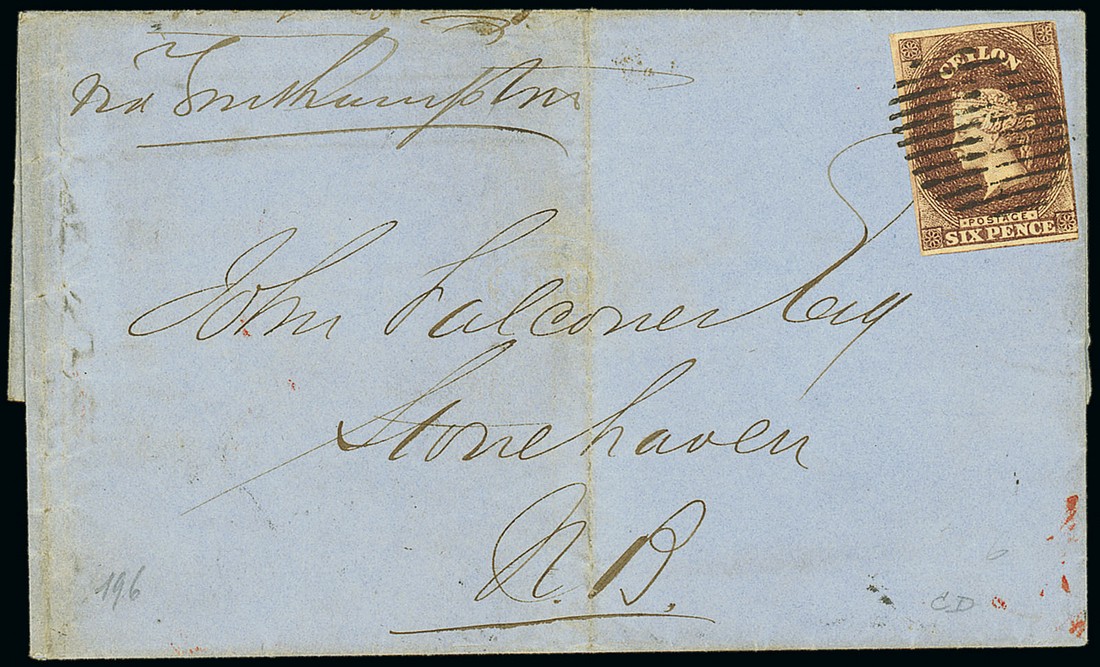 via Southampton
CEYLON
POSTAGE
SIX PENCE
John Falconer Esq
Stonehaven
N.B.
196
C.D